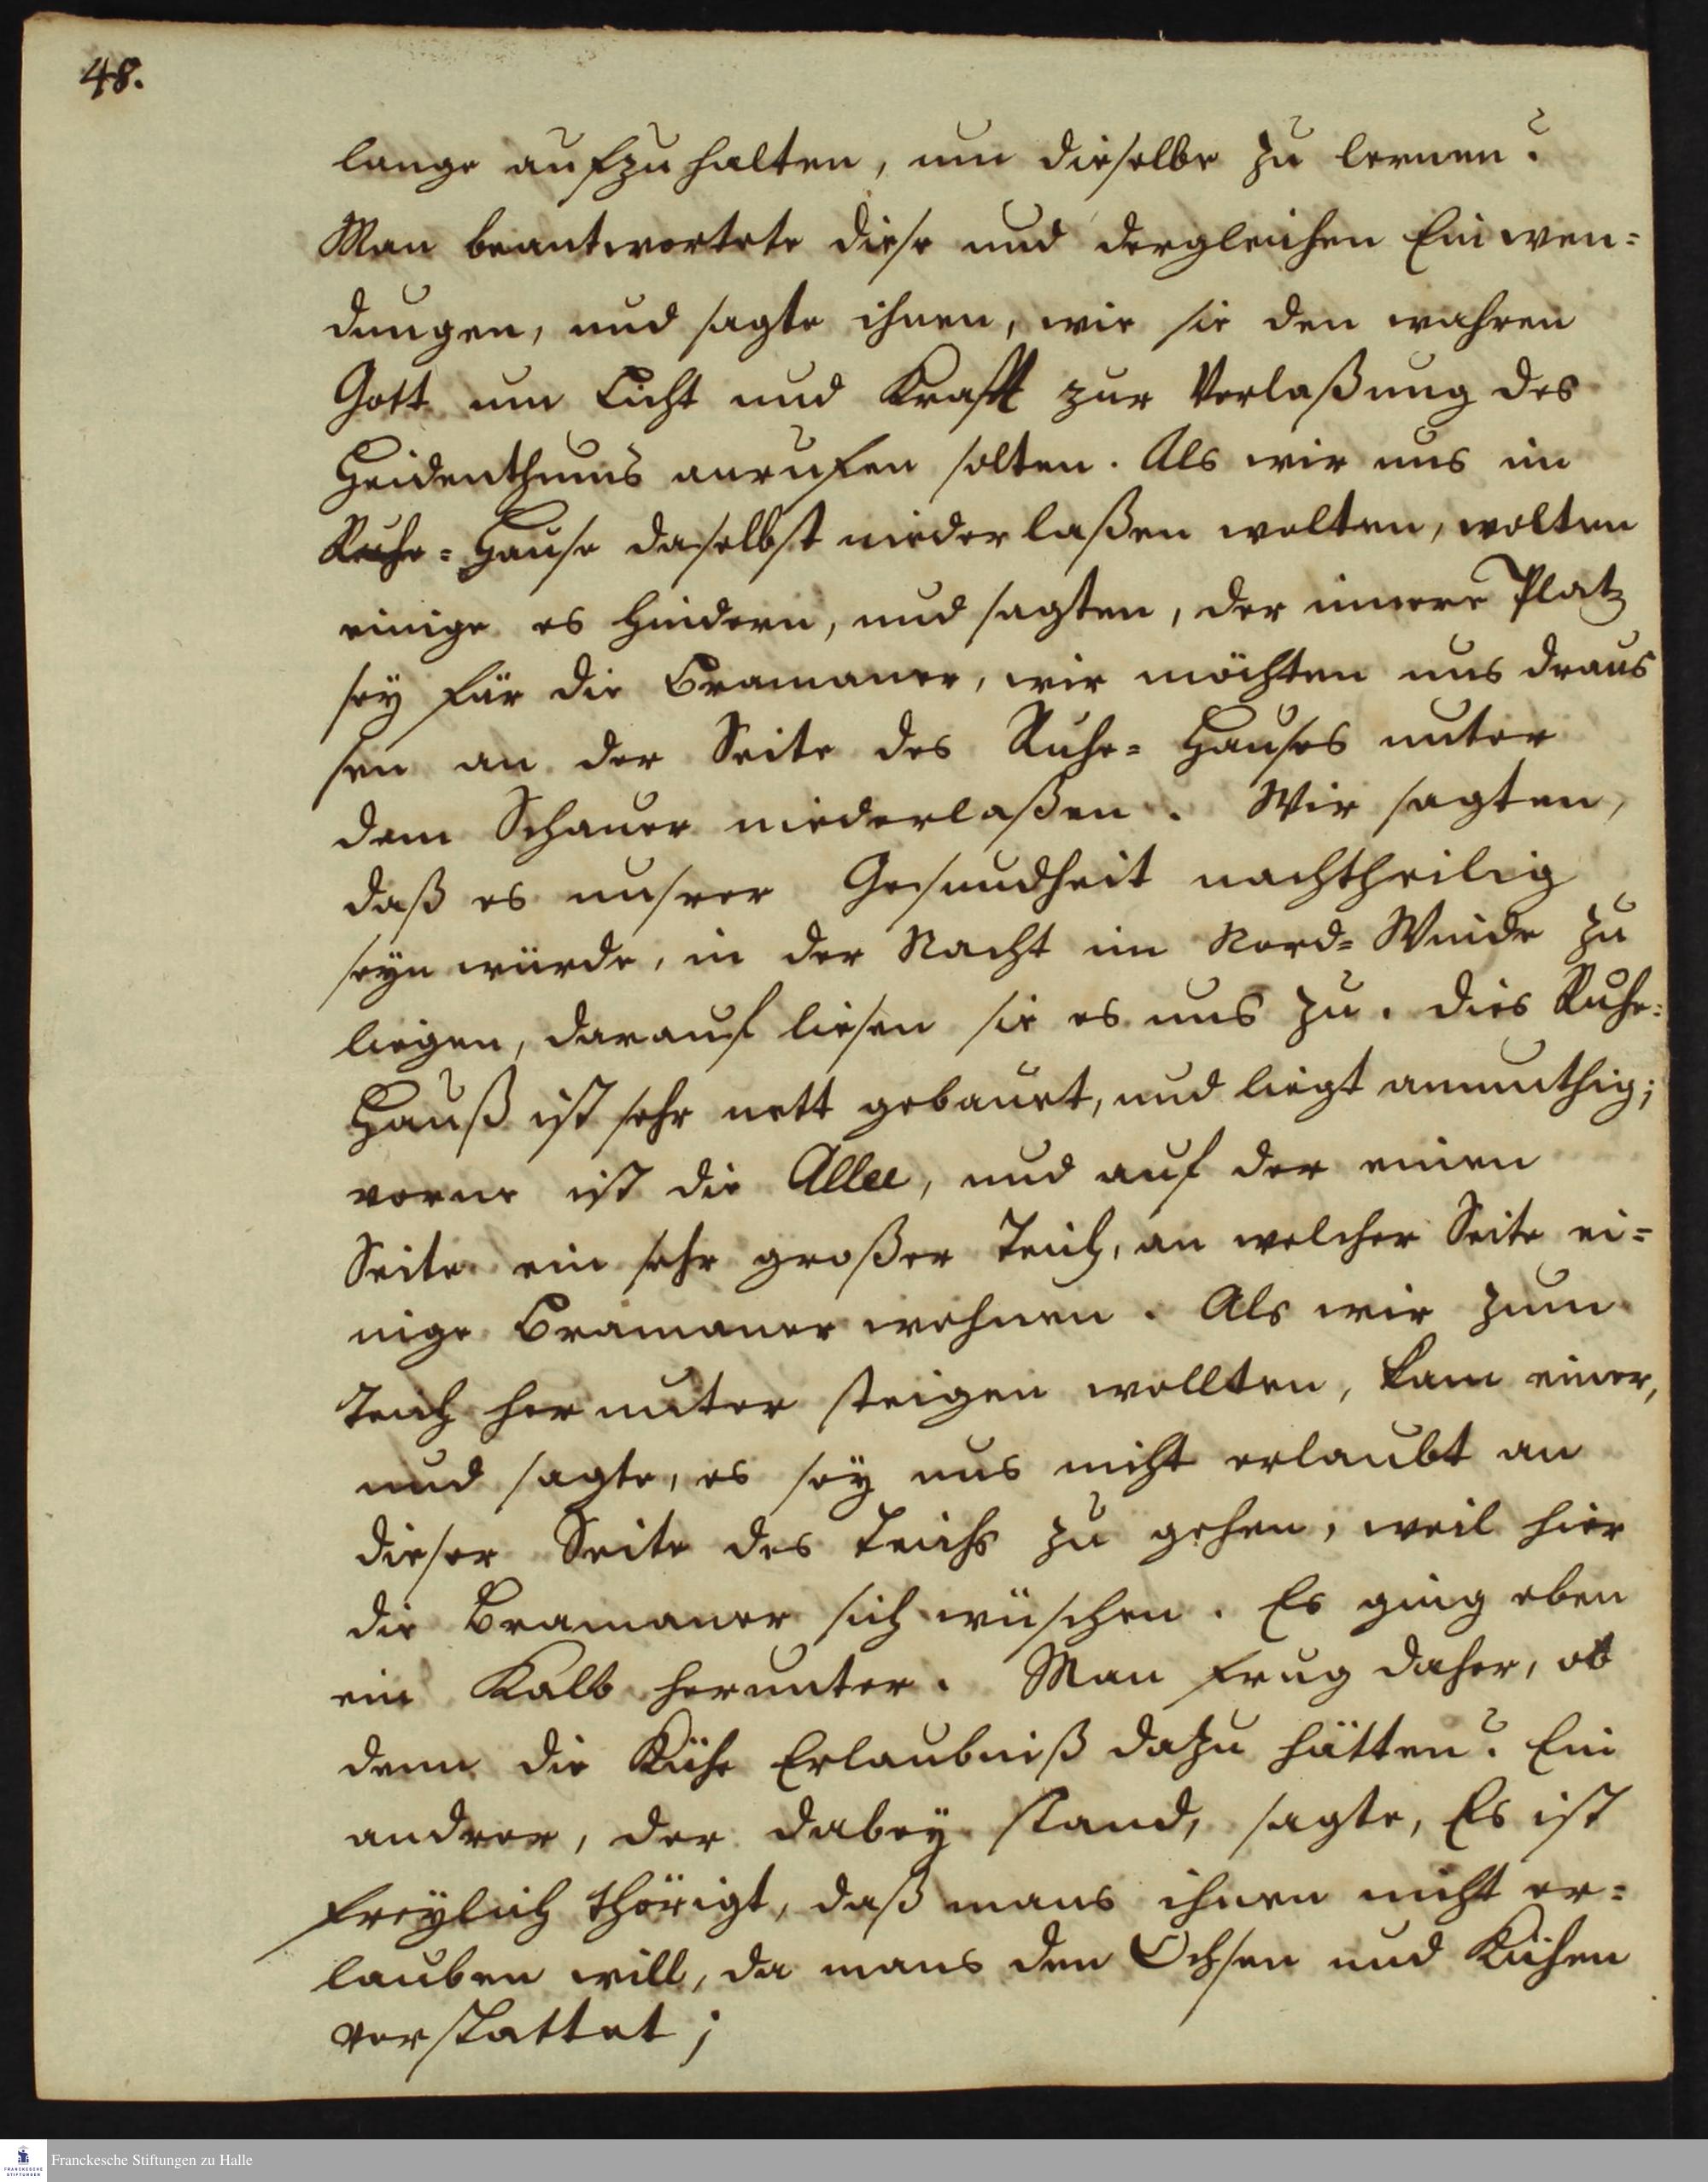 48.
lange aufzuhalten, um dieselbe zu lernen?
Man beantwortete diese und dergleichen Einwen=
dungen, und sagte ihnen, wie sie den wahren
Gott um Licht und Krafft zur Verlaßung des
Heidenthums anrufen solten. Als wir uns im
Ruhe=Hause daselbst niederlaßen wolten, wolten
einige es hindern, und sagten, der innere Platz
sey für die Bramaner, wir möchten uns draus
sen an der Seite des Ruhe=Hauses unter
dem Schauer niederlaßen. Wir sagten,
daß es unsrer Gesundheit nachtheilig
seyn würde, in der Nacht im Nord=Winde zu
liegen, darauf liesen sie es uns zu. Dies Ruhe=
Hauß ist sehr nett gebauet, und liegt anmuthig;
vorne ist die Allee, und auf der einen
Seite ein sehr großer Teich, an welcher Seite ei=
nige Bramaner wohnen. Als wir zum
Teich herunter steigen wollten, kam einer,
und sagte, es sey uns nicht erlaubt an
dieser Seite des Teichs zu gehen, weil hier
die Bramaner sich wüschen. Es ging eben
ein Kalb herunter. Man frug daher, ob
denn die Kühe Erlaubniß dazu hätten? Ein
andrer, der dabey stand, sagte, Es ist
freylich thörigt, daß mans ihnen nicht er=
lauben will, da mans den Ochsen und Kühen
verstattet;
Franckesche Stiftungen zu Halle
FRANCKESCHE
STIFTUNGEN